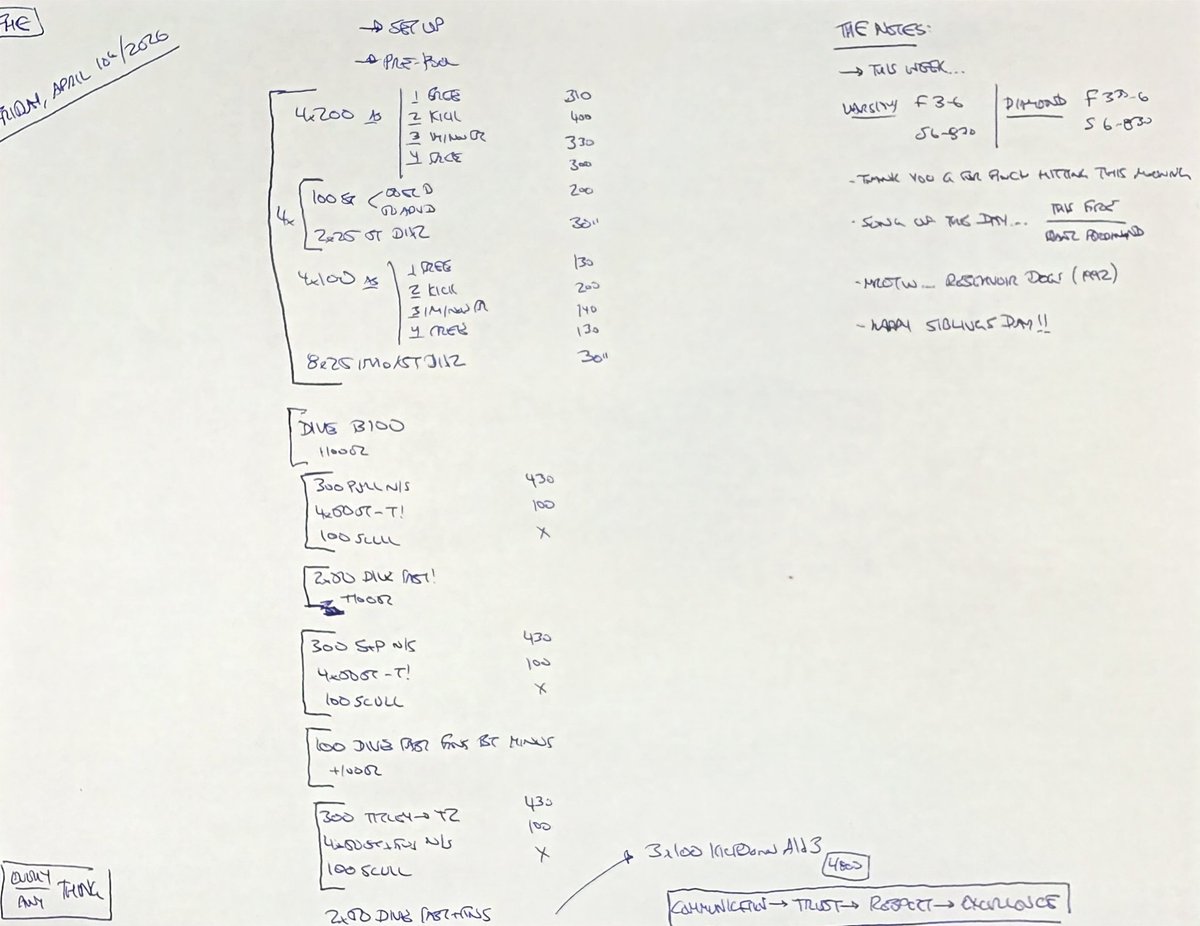 THE
FRIDAY, APRIL 10th/2026
→ SET UP
→ PRE-POOL
4x200 AS
1 FREE 310
2 KICK 400
3 IM/NO FR 330
4 FREE 300
4x
100 EZ 200
2x25 ST DIVE 30"
4x100 AS
1 FREE 130
2 KICK 200
3 IM/NO FR 140
4 FREE 130
8x25 IMO 1ST 30"
DIVE B100
+100EZ
300 PULL N/S 430
4x50 ST-T! 100
100 SCULL X
2x50 DIVE FAST!
+100EZ
300 S+P N/S 430
4x50 ST-T! 100
100 SCULL X
100 DIVE FAST FINS BT MINUS
+100EZ
300 → 430
4x50 ST+FINS N/S 100
100 SCULL X
2x50 DIVE FAST+FINS
3x100 KICK DOWN A1d3
4800
THE NOTES:
→ THIS WEEK...
VARSITY F 3-6
S 6-830
DIAMOND F 330-6
S 6-830
- THANK YOU G FOR PINCH HITTING THIS MORNING
- SONG OF THE DAY... THIS FIRE
FRANZ FERDINAND
- MROTW... RESERVOIR DOGS (1992)
- HAPPY SIBLINGS DAY!!
EVERY
ANY THING
COMMUNICATION → TRUST → RESPECT → EXCELLENCE